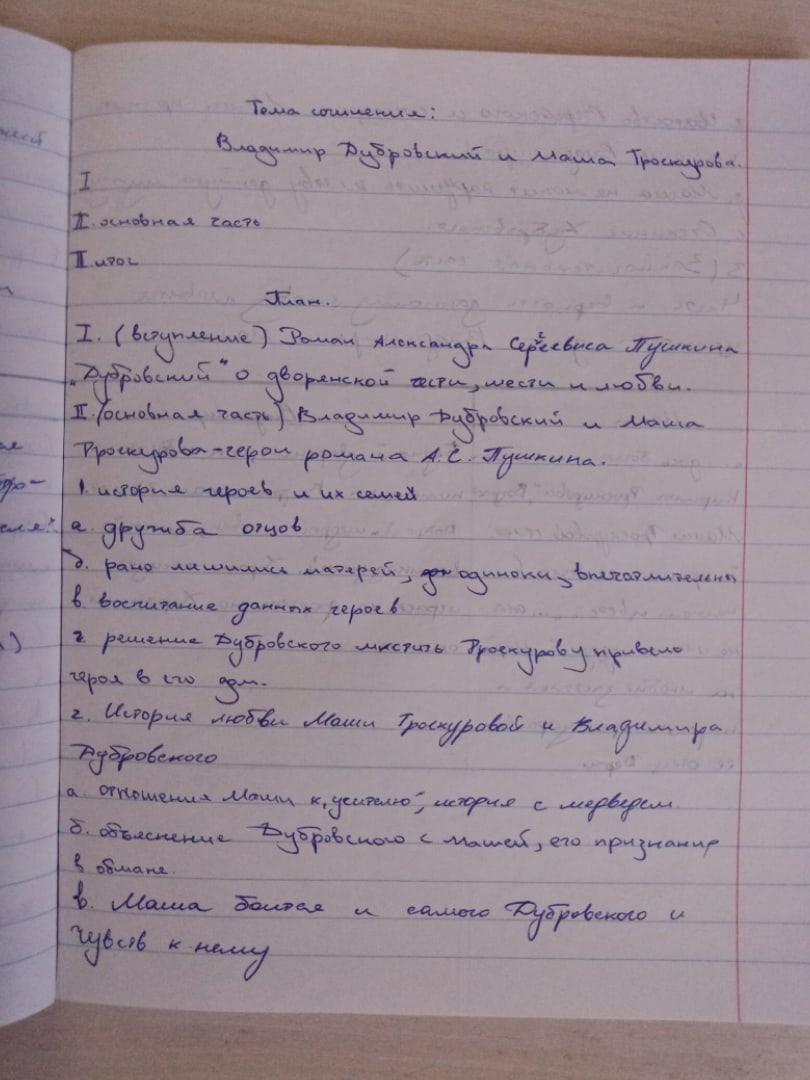 Тема сочинения:
Владимир Дубровский и Маша Троекурова.
I
II. основная часть
II. итог
План.
I. (вступление) Роман Александра Сергеевиса Пушкина
„Дубровский" о дворянской чести, мести и любви.
II. (основная часть) Владимир Дубровский и Маша
Троскурова - герои романа А.С. Пушкина.
1. история героев и их семей
а. дружба отцов
б. рано лишились матерей, одиноки, впечатлительны
в. воспитание данных героев
г. решение Дубровского мстить Троскурову привело
героя в его дом.
2. История любви Маши Троскуровой и Владимира
Дубровского
а. отношения Маши к „учителю", история с медведем.
б. объяснение Дубровского с Машей, его признание
в обмане.
в. Маша боится и самого Дубровского и
чувств к нему